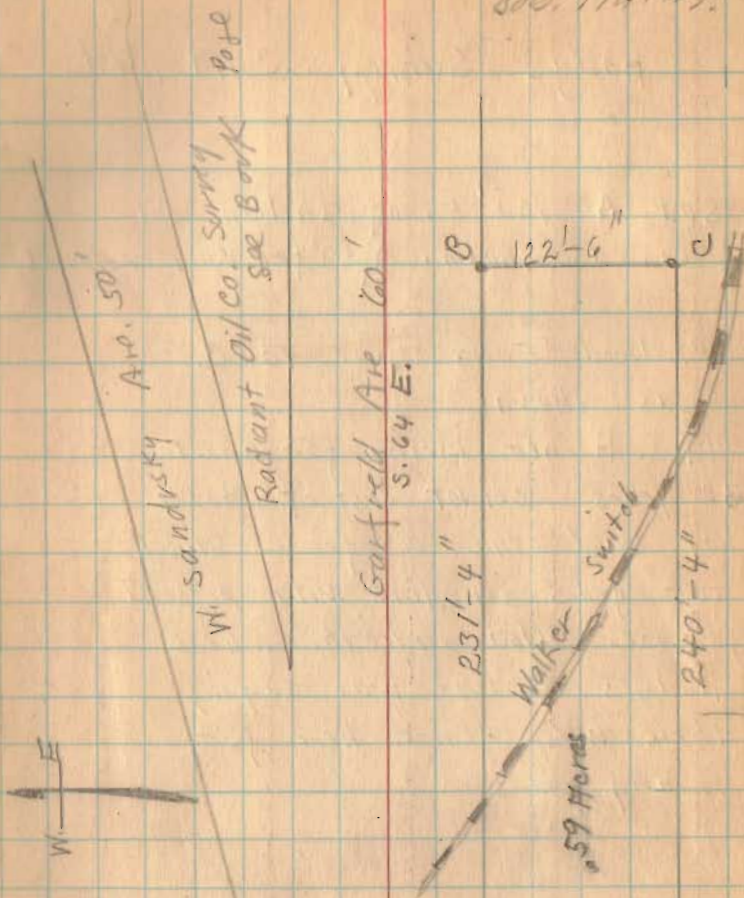 W. Sandusky Ave. 50'
Radiant Oil Co. Survey
See Book Page
Garfield Ave 60'
S. 64 E.
B
122'-6"
C
231'-4"
Walker Switch
240'-4"
.59 Acres
W. E